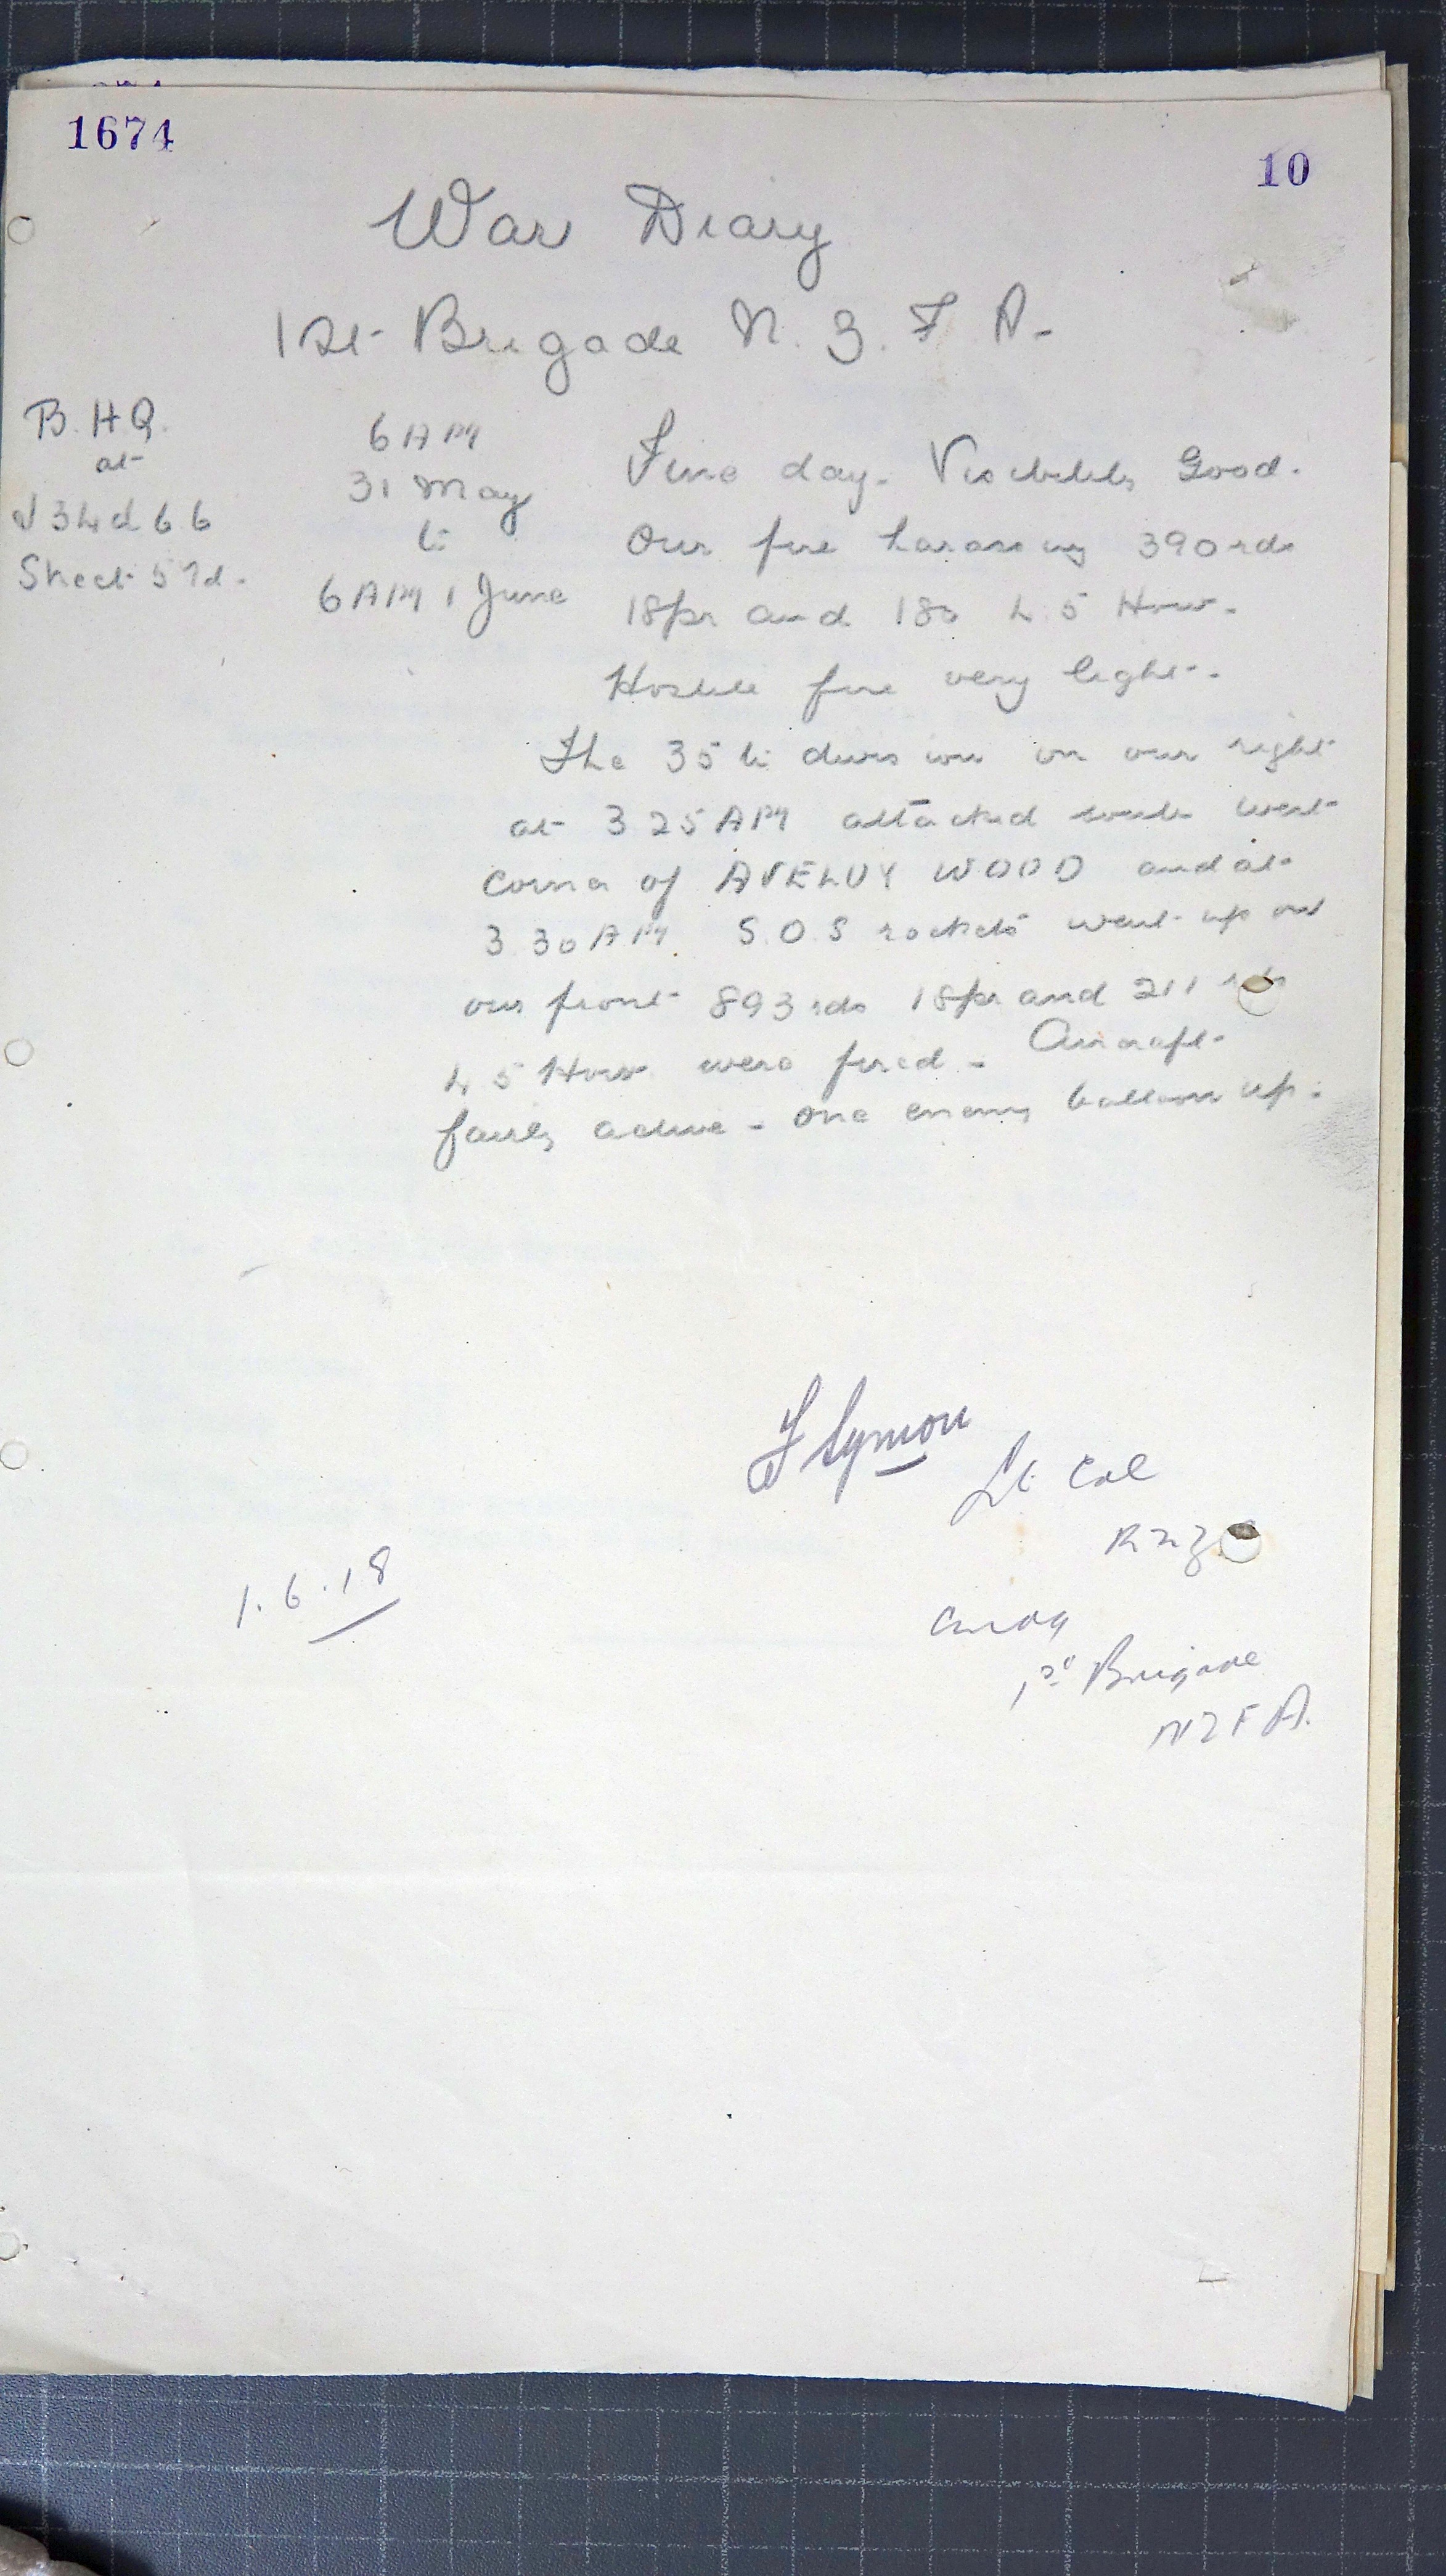 1674
10
War Diary
1st Brigade N. Z. F. A.
B. H. Q.
at
J 34 d 6 6
Sheet 57d.
6 AM
31 May
to
6 AM 1 June
Fine day. Visibility Good.
Our fire harassing 390 rds
18pr and 180 4.5 How.
Hostile fire very light.
The 35th division on our right
at 3 25 AM attacked south west
corner of AVELUY WOOD and at
3 30 AM S.O.S rockets went up on
our front 893 rds 18pr and 211 rds
4 5 How were fired. Aircraft
fairly active - One enemy balloon up.
F Symon
Lt Col
RNZ
1.6.18
Cmdg
1st Brigade
NZFA.